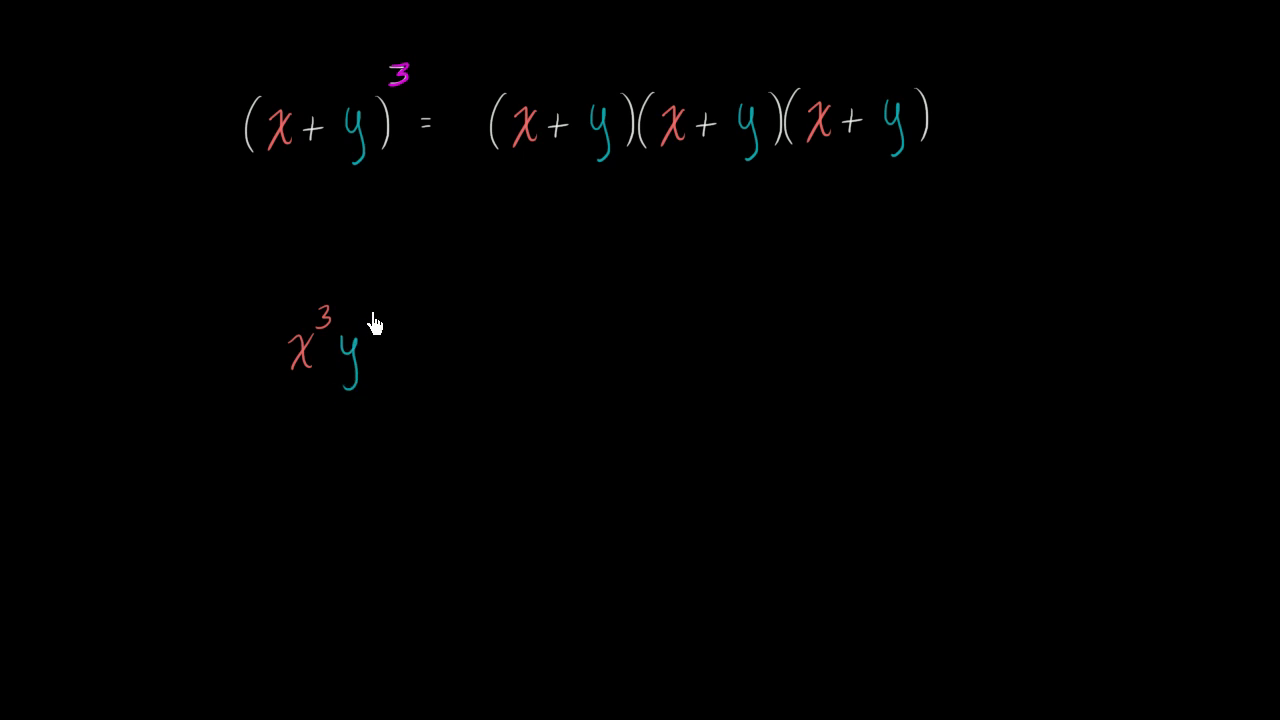 (x + y)³ = (x + y)(x + y)(x + y)
x³y